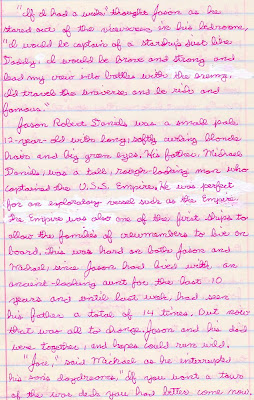 "If I had a wish" thought Jason as he
stared out of the viewscreen in his bedroom,
"I would be captain of a starship just like
Daddy. I would be brave and strong and
lead my crew into battles with the enemy.
I'd travel the universe and be rich and
famous."
Jason Robert Daniels was a small, pale
12-year-old with long, softly curling blonde
hair and big green eyes. His father, Michael
Daniels, was a tall, rough-looking man who
captained the U.S.S. Empire. He was perfect
for an exploratory vessel such as the Empire.
The Empire was also one of the first ships to
allow the families of crewmembers to live on
board, this was hard on both Jason and
Michael, since Jason had lived with an
ancient-looking aunt for the last 10
years and until last week, had seen
his father a total of 14 times. But now
that was all to change, Jason and his dad
were together, and hopes could run wild.
" said Michael as he interrupted
his son's daydreams, "If you want a tour
of the war deck you better come now.